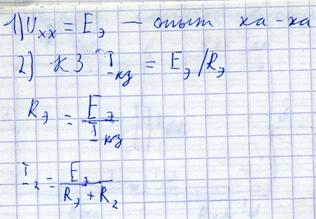 1) Uхх = Eэ — опыт ха-ха
2) КЗ Iкз = Eэ/Rэ
Rэ = Eэ/Iкз
I2 = Eэ/(Rэ + R2)